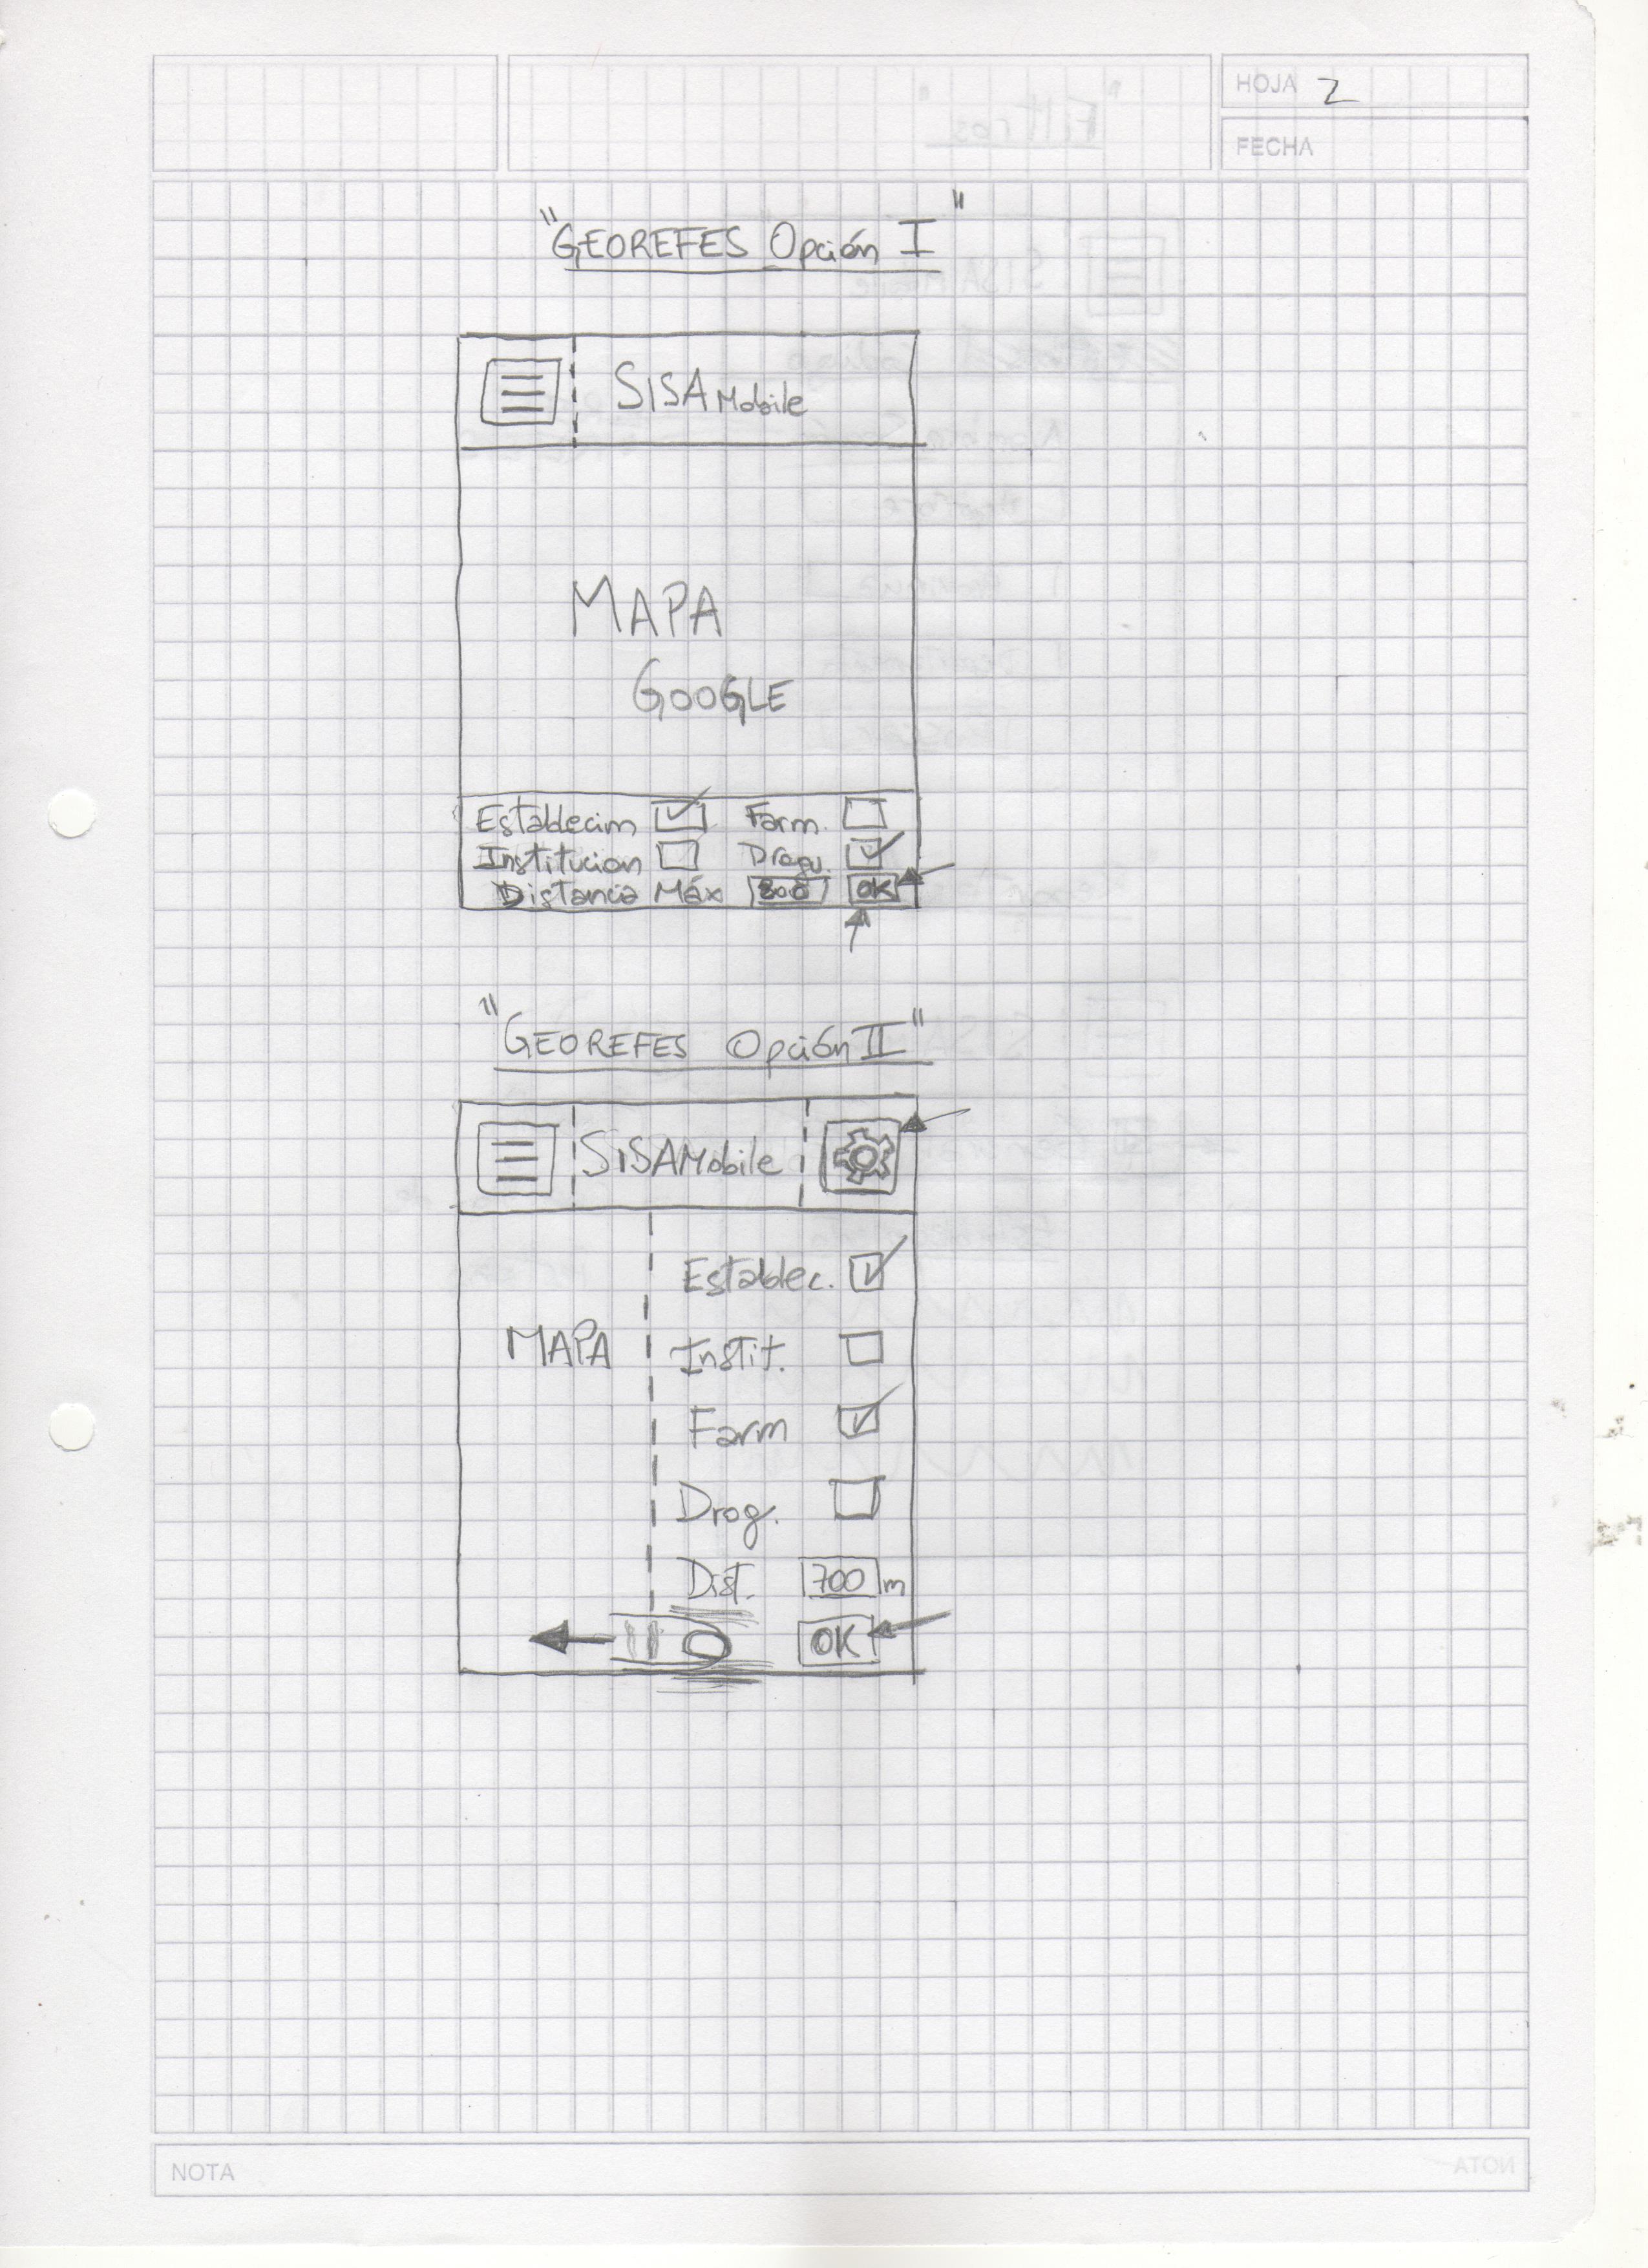 HOJA 2
FECHA
"GEOREFES Opción I"
SISA Mobile
MAPA
GOOGLE
Establecim Farm.
Institucion Drogu.
Distancia Máx 800 OK
"GEOREFES Opción II"
SISA Mobile
Establec.
MAPA Instit.
Farm
Drog.
Dist. 700 m
OK
NOTA